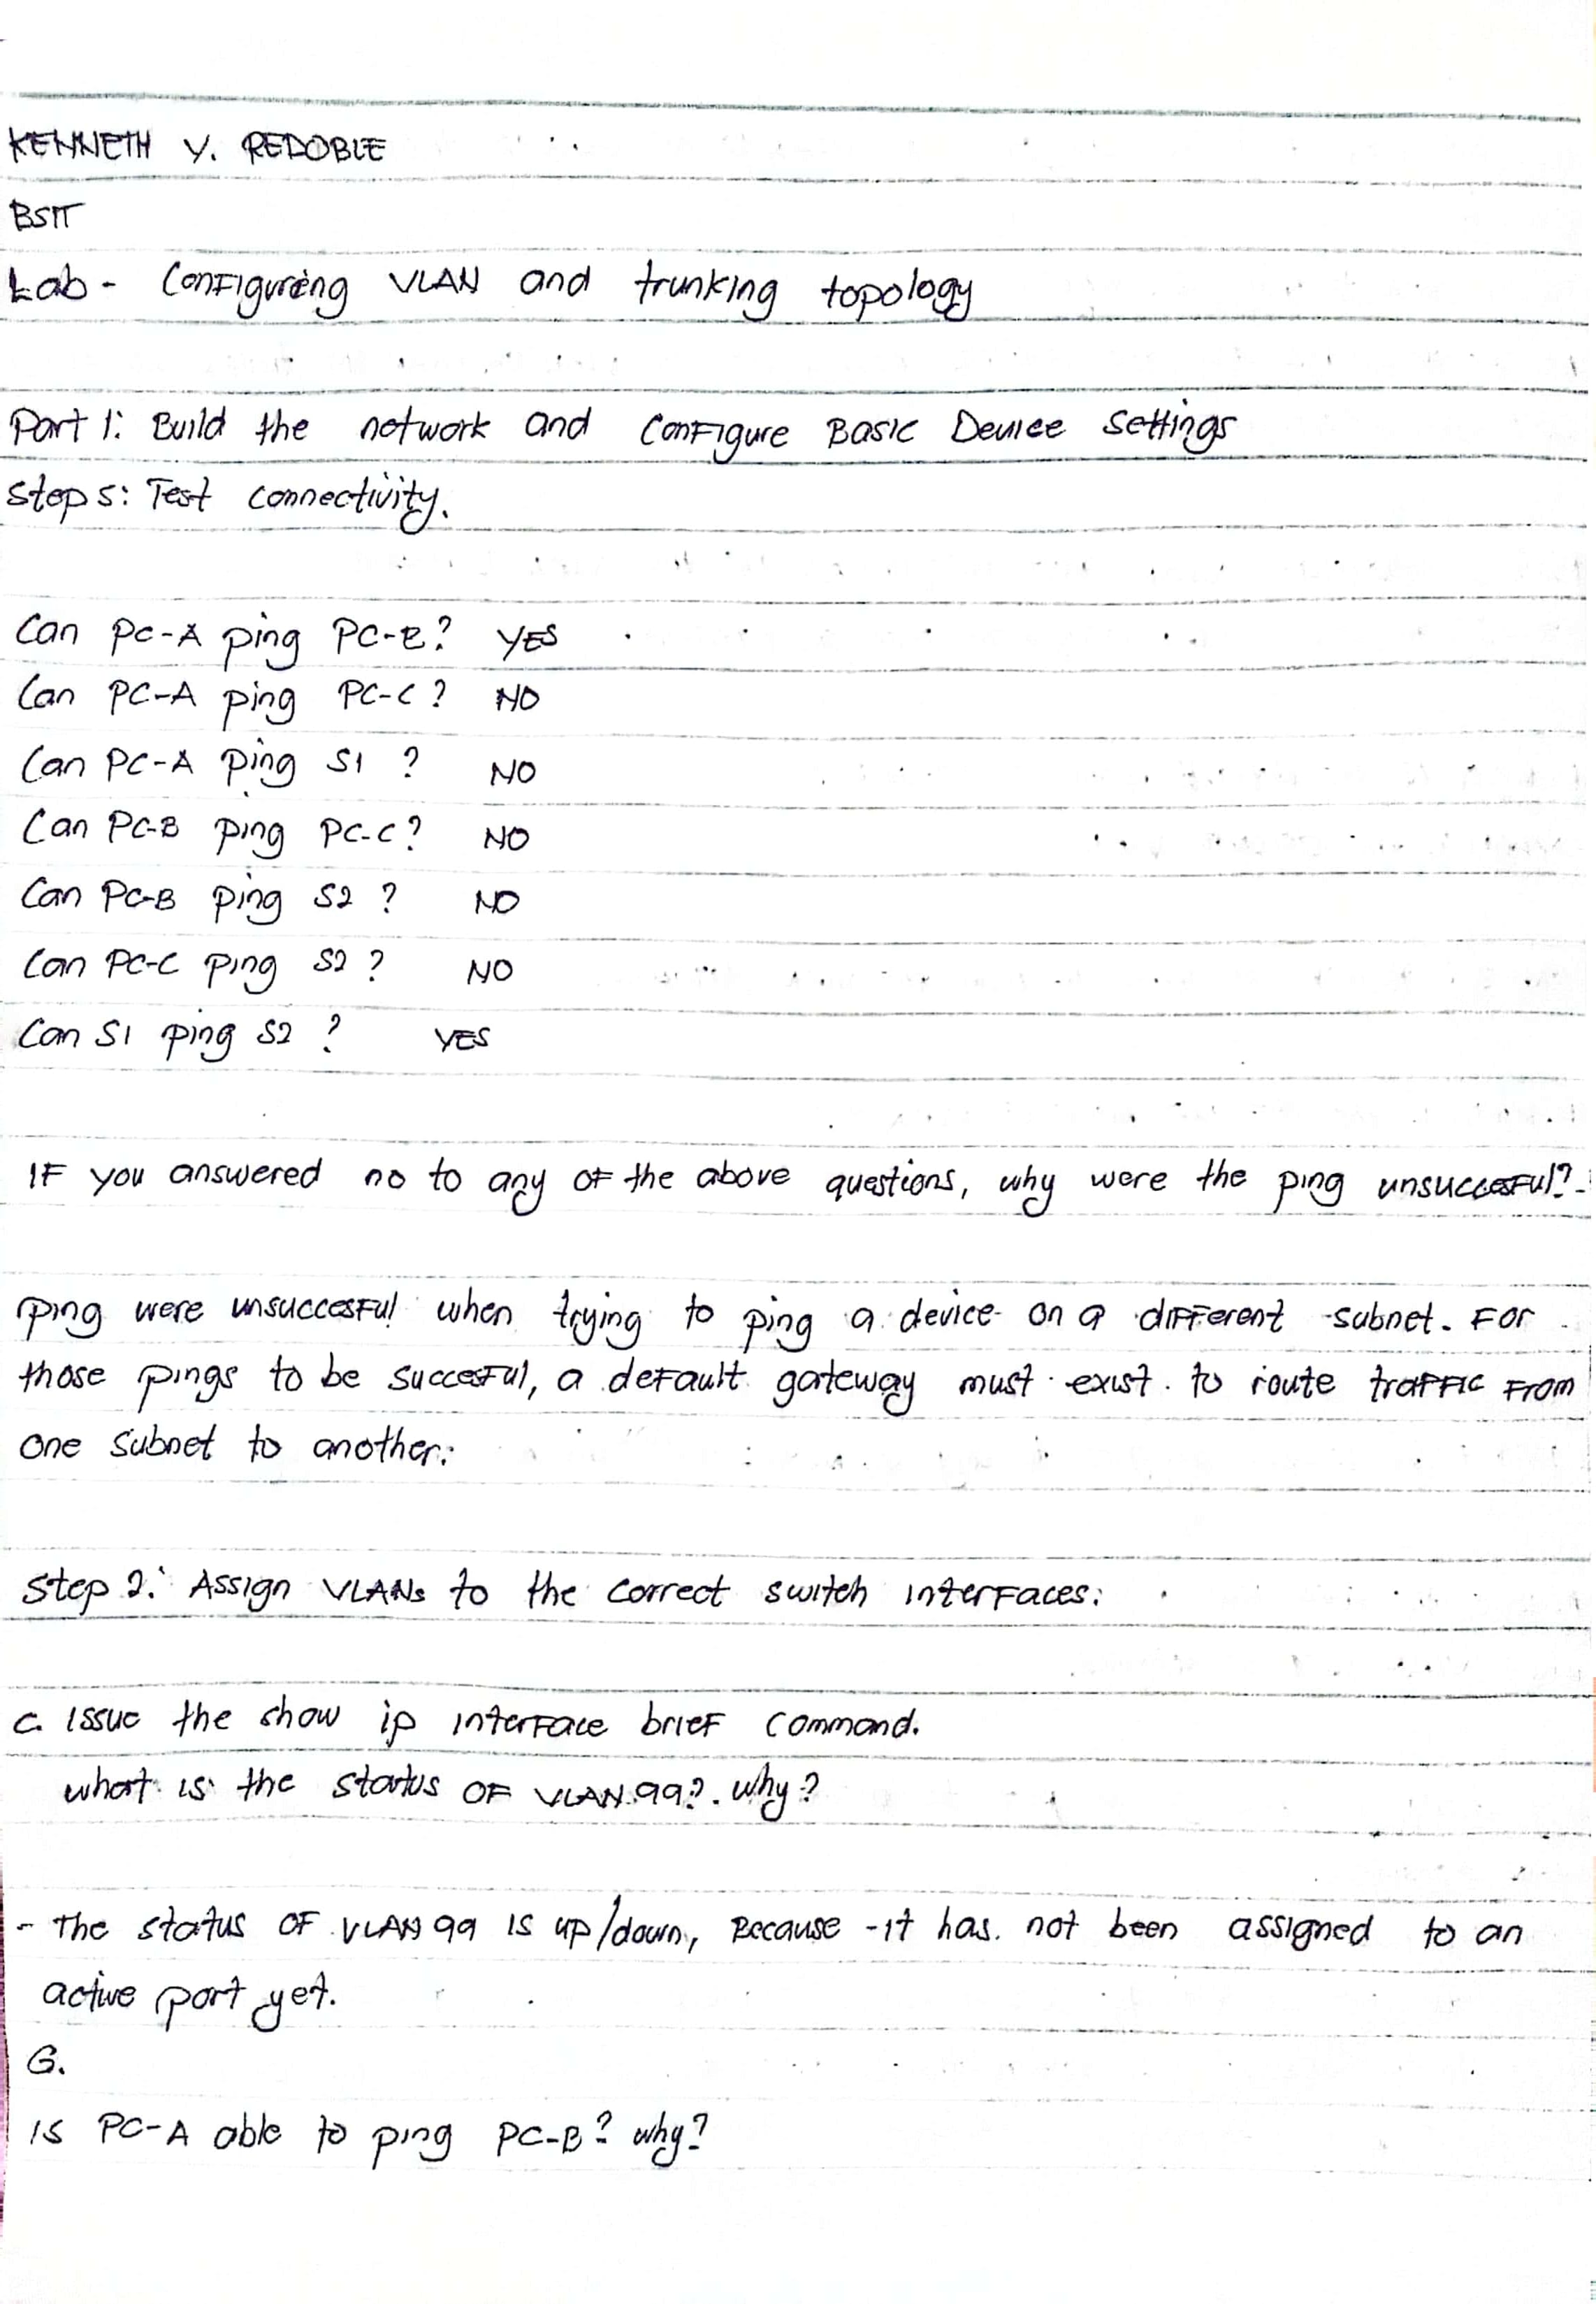 KENNETH Y. REDOBLE
BSIT
Lab - Configuring VLAN and trunking topology
Part 1: Build the network and Configure Basic Device Settings
Step 5: Test connectivity.
Can PC-A ping PC-B? YES
Can PC-A ping PC-C? NO
Can PC-A ping S1 ? NO
Can PC-B ping PC-C? NO
Can PC-B ping S2 ? NO
Can PC-C ping S2 ? NO
Can S1 ping S2 ? YES
IF you answered no to any of the above questions, why were the ping unsuccesful?
ping were unsuccesful when trying to ping a device on a different subnet. For
those pings to be succesful, a default gateway must exist to route traffic from
one subnet to another.
Step 2: Assign VLANs to the correct switch interfaces:
c. Issue the show ip interface brief command.
what is the status of VLAN 99?. why?
- The status of VLAN 99 is up/down, Because it has not been assigned to an
active port yet.
G.
Is PC-A able to ping PC-B? why?